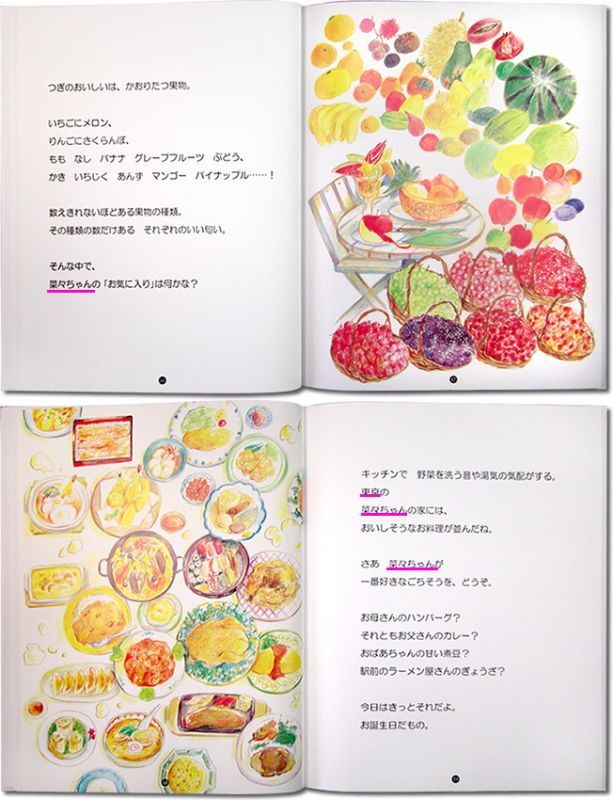 つぎのおいしいは、かおりたつ果物。
いちごにメロン、
りんごにさくらんぼ、
もも なし バナナ グレープフルーツ ぶどう、
かき いちじく あんず マンゴー パイナップル……!
数えきれないほどある果物の種類。
その種類の数だけある それぞれのいい匂い。
そんな中で、
菜々ちゃんの「お気に入り」は何かな?
キッチンで 野菜を洗う音や湯気の気配がする。
東京の
菜々ちゃんの家には、
おいしそうなお料理が並んだね。
さあ 菜々ちゃんが
一番好きなごちそうを、どうぞ。
お母さんのハンバーグ?
それともお父さんのカレー?
おばあちゃんの甘い煮豆?
駅前のラーメン屋さんのぎょうざ?
今日はきっとそれだよ。
お誕生日だもの。